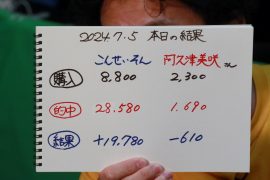 2024.7.5 本日の結果
こしせいそん 阿久津美咲さん
購入 8,800 2,300
的中 28.580 1.690
結果 +19,780 -610